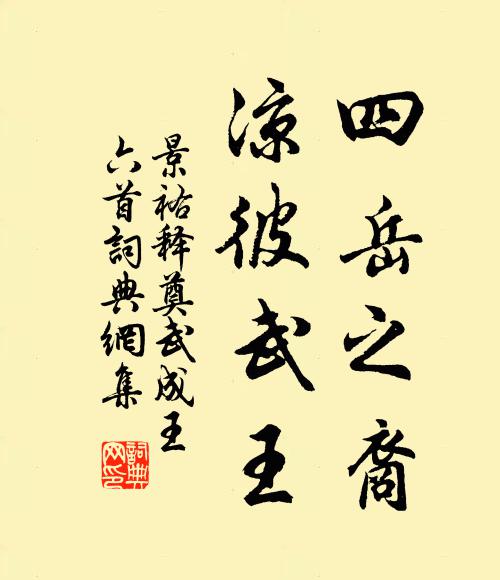 四岳之裔
涼彼武王
景祐释奠武成王
六首詞典網集
詞典网印